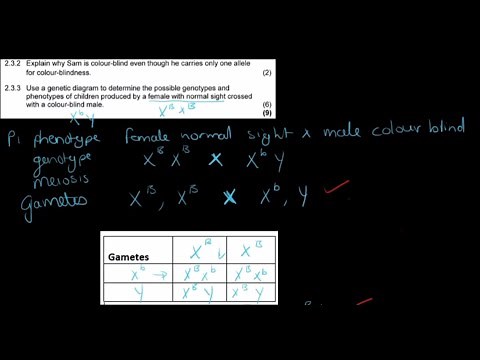 2.3.2 Explain why Sam is colour-blind even though he carries only one allele
for colour-blindness. (2)
2.3.3 Use a genetic diagram to determine the possible genotypes and
phenotypes of children produced by a female with normal sight crossed
with a colour-blind male. (6)
(9)
XᵇY XᴮXᴮ
P₁ phenotype female normal sight x male colour blind
genotype XᴮXᴮ x XᵇY
meiosis
Gametes Xᴮ, Xᴮ x Xᵇ, Y ✓
Gametes Xᴮ Xᴮ
Xᵇ → XᴮXᵇ XᴮXᵇ
Y XᴮY XᴮY